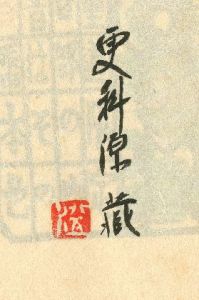 更科源藏